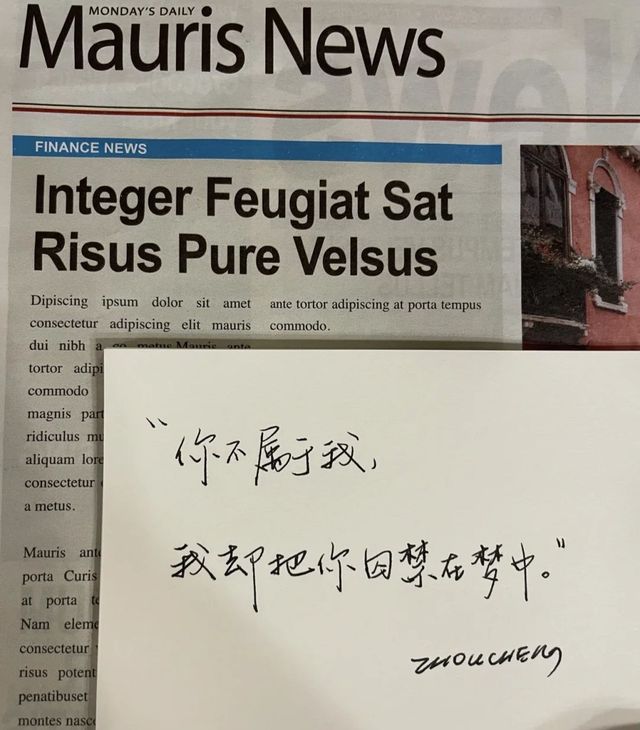 MONDAY'S DAILY
Mauris News
FINANCE NEWS
Integer Feugiat Sat
Risus Pure Velsus
Dipiscing ipsum dolor sit amet
consectetur adipiscing elit mauris
dui nibh a co metus Mauris ante
tortor adipi
commodo
magnis part
ridiculus mu
aliquam lore
consectetur
a metus.
Mauris ante
porta Curis
at porta te
Nam eleme
consectetur
risus potent
penatibuset
montes nasc
ante tortor adipiscing at porta tempus
commodo.
“你不属于我，
我却把你囚禁在梦中。”
ZHOUCHENG